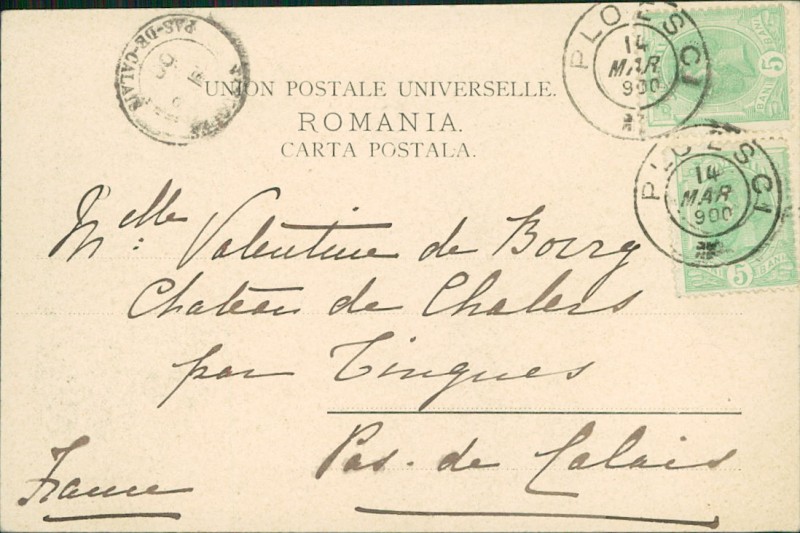 PAS-DE-CALAIS
UNION POSTALE UNIVERSELLE.
ROMANIA.
CARTA POSTALA.
PLOESCI
14
MAR
900
5
BANI
PLOESCI
14
MAR
900
5
BANI
Melle: Valentine de Borrg
Chateau de Chalers
par Tingues
Pas. de Calais
France